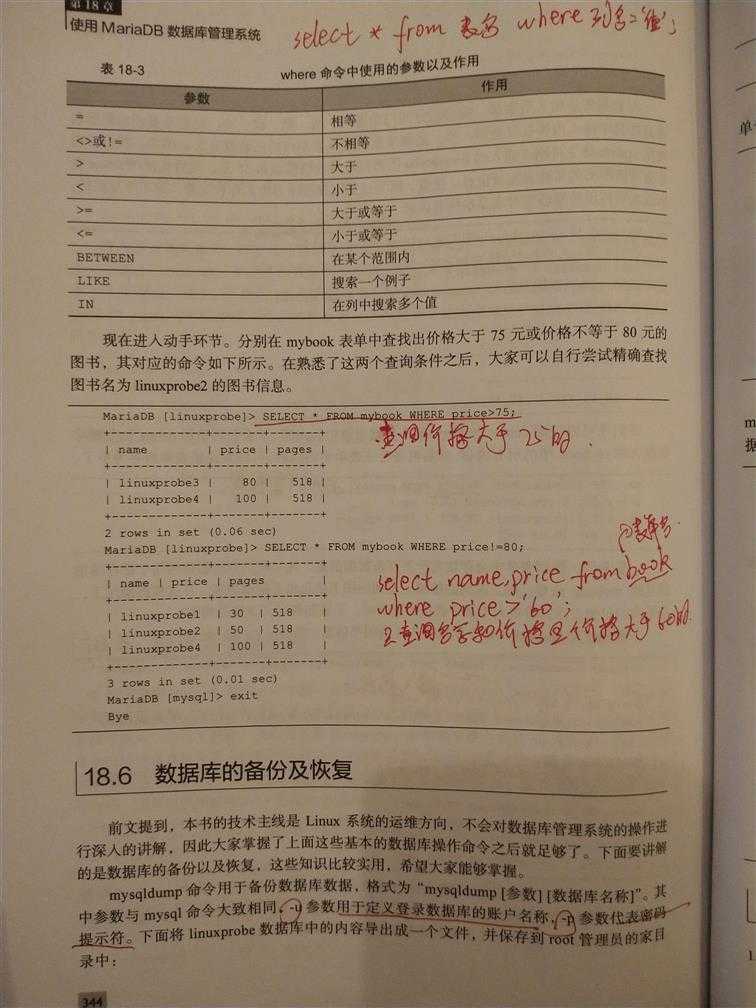 第18章
使用 MariaDB 数据库管理系统
select * from 表名 where 列名='值';
表 18-3 where 命令中使用的参数以及作用
参数 作用
= 相等
<>或!= 不相等
> 大于
< 小于
>= 大于或等于
<= 小于或等于
BETWEEN 在某个范围内
LIKE 搜索一个例子
IN 在列中搜索多个值
现在进入动手环节。分别在 mybook 表单中查找出价格大于 75 元或价格不等于 80 元的
图书，其对应的命令如下所示。在熟悉了这两个查询条件之后，大家可以自行尝试精确查找
图书名为 linuxprobe2 的图书信息。
MariaDB [linuxprobe]> SELECT * FROM mybook WHERE price>75;
+-------------+-------+-------+
查询价格大于75的.
| name | price | pages |
+-------------+-------+-------+
| linuxprobe3 | 80 | 518 |
| linuxprobe4 | 100 | 518 |
+-------------+-------+-------+
2 rows in set (0.06 sec)
MariaDB [linuxprobe]> SELECT * FROM mybook WHERE price!=80;
+-------------+-------+-------+
| name | price | pages |
+-------------+-------+-------+
| linuxprobe1 | 30 | 518 |
| linuxprobe2 | 50 | 518 |
| linuxprobe4 | 100 | 518 |
+-------------+-------+-------+
表单名.
select name,price from book
where price>'60';
查询名字和价格且价格大于60的.
3 rows in set (0.01 sec)
MariaDB [mysql]> exit
Bye
18.6 数据库的备份及恢复
前文提到，本书的技术主线是 Linux 系统的运维方向，不会对数据库管理系统的操作进
行深入的讲解，因此大家掌握了上面这些基本的数据库操作命令之后就足够了。下面要讲解
的是数据库的备份以及恢复，这些知识比较实用，希望大家能够掌握。
mysqldump 命令用于备份数据库数据，格式为“mysqldump [参数] [数据库名称]”。其
中参数与 mysql 命令大致相同，-u 参数用于定义登录数据库的账户名称，-p 参数代表密码
提示符。下面将 linuxprobe 数据库中的内容导出成一个文件，并保存到 root 管理员的家目
录中：
344